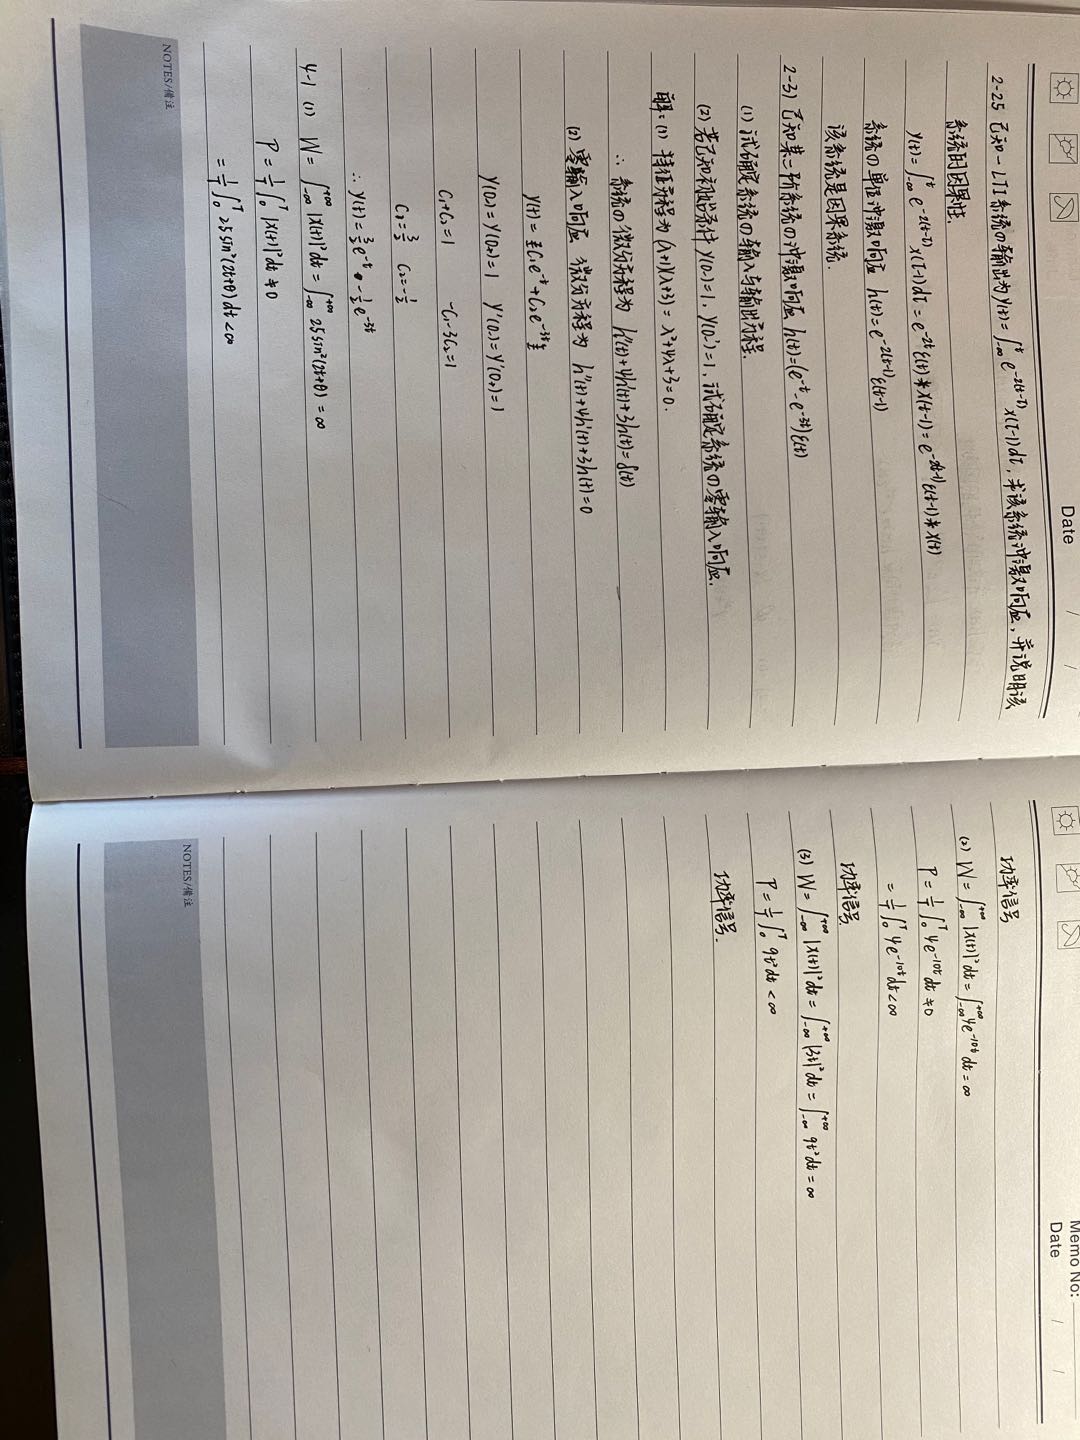 Date / /
2-25 已知一LTI系统の输出为 y(t) = ∫_{-∞}^{t} e^{-2(t-τ)} x(τ-1)dτ, 求该系统冲激响应, 并说明该
系统的因果性.
y(t) = ∫_{-∞}^{t} e^{-2(t-τ)} x(τ-1)dτ = e^{-2t}ε(t) * x(t-1) = e^{-2(t-1)}ε(t-1) * x(t)
系统の单位冲激响应 h(t) = e^{-2(t-1)}ε(t-1)
该系统是因果系统.
2-31 已知某二阶系统の冲激响应 h(t)=(e^{-t}-e^{-3t})ε(t)
(1) 试确定系统の输入与输出方程.
(2) 若已知初始条件 y(0-)=1, y'(0-)=1, 试确定系统の零输入响应.
解: (1) 特征方程为 (λ+1)(λ+3) = λ²+4λ+3=0.
∴ 系统の微分方程为 h''(t)+4h'(t)+3h(t)=δ(t)
(2) 零输入响应 微分方程为 h''(t)+4h'(t)+3h(t)=0
y(t) = C₁e^{-t}+C₂e^{-3t}
y(0-)=y(0+)=1 y'(0-)=y'(0+)=1
C₁+C₂=1 -C₁-3C₂=1
C₂=-1/2
∴ y(t) = e^{-t} - 1/2 e^{-3t}
4-1 (1) W = ∫_{-∞}^{+∞} |x(t)|²dt = ∫_{-∞}^{+∞} 25sin²(2t+θ) = ∞
P = 1/T ∫_0^T |x(t)|²dt ≠ 0
= 1/T ∫_0^T 25sin²(2t+θ)dt < ∞
NOTES/備注
Memo No:
Date / /
功率信号
(2) W = ∫_{-∞}^{+∞} |x(t)|²dt = ∫_{-∞}^{+∞} 4e^{-10t}dt = ∞
P = 1/T ∫_0^T 4e^{-10t}dt ≠ 0
= 1/T ∫_0^T 4e^{-10t}dt < ∞
功率信号
(3) W = ∫_{-∞}^{+∞} |x(t)|²dt = ∫_{-∞}^{+∞} |3t|²dt = ∫_{-∞}^{+∞} 9t²dt = ∞
P = 1/T ∫_0^T 9t²dt < ∞
功率信号.
NOTES/備注